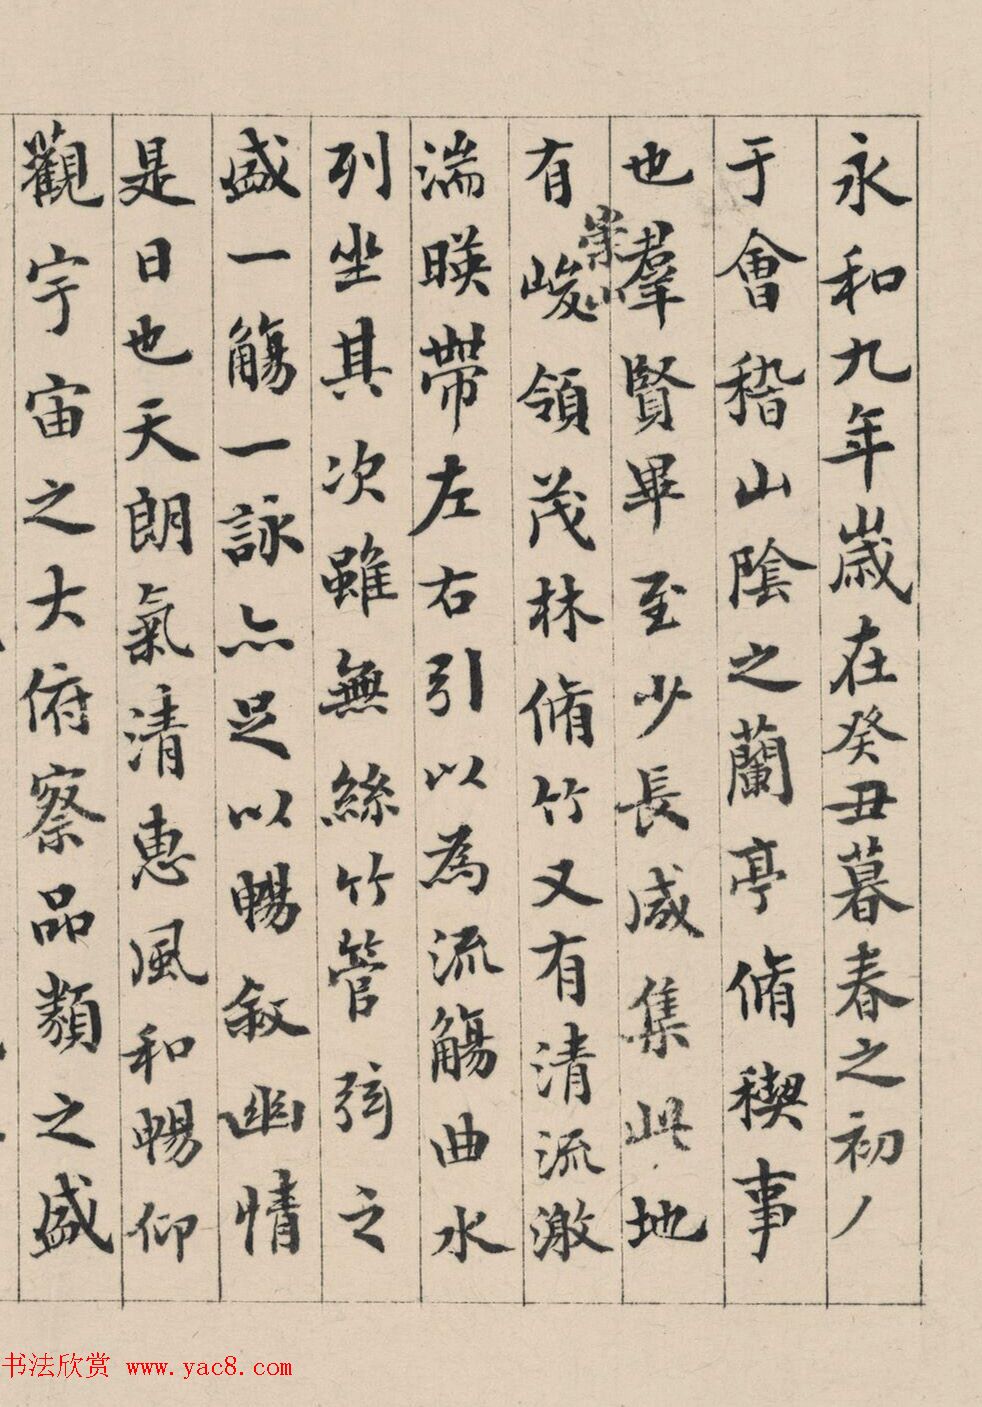 永和九年歲在癸丑暮春之初丿
于會稽山陰之蘭亭脩稧事
也羣賢畢至少長咸集此地
有崇山峻領茂林脩竹又有清流激
湍暎帶左右引以為流觴曲水
列坐其次雖無絲竹管弦之
盛一觴一詠亦足以暢敘幽情
是日也天朗氣清惠風和暢仰
觀宇宙之大俯察品類之盛
书法欣赏 www.yac8.com